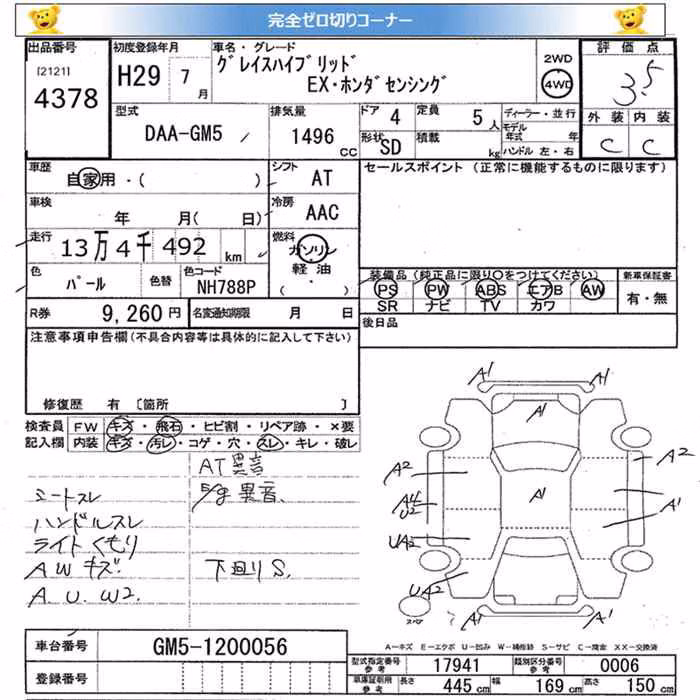 完全ゼロ切りコーナー
出品番号 初度登録年月 車名・グレード 2WD 評価点
[2121] 4378 H29 7月 グレイスハイブリッド 4WD 3.5
EX・ホンダセンシング
型式 排気量 ドア 4 定員 5人 ディーラー・並行 外装 内装
DAA-GM5 1496cc 形状 SD 積載 kg モデル年式 年 C C
ハンドル 左・右
車歴 自家用・( ) シフト AT セールスポイント (正常に機能するものに限ります)
車検 年 月( 日) 冷房 AAC
走行 13万4千492km 燃料 ガソリン
軽油
・( )
色 パール 色替 色コード NH788P 装備品(純正品に限り○をつけてください) 新車保証書
PS PW ABS エアB AW 有・無
SR ナビ TV カワ
R券 9,260円 名変通知期限 月 日 後日品
注意事項申告欄(不具合内容等は具体的に記入して下さい)
修復歴 有 [箇所 ]
検査員 FW キズ・飛石・ヒビ割・リペア跡・×要
記入欄 内装 キズ・汚レ・コゲ・穴・スレ・キレ・破レ
AT異音
シートスレ
ハンドルスレ
ライトくもり
AWキズ 下回りS.
A.U.W2
A1 A1
A1
A2 A2
A1 A1
U2
UA2 A1
UA2
A1 A1
スペア
A-キズ E-エクボ U-凹み W-補修跡 S-サビ C-腐食 XX-交換済
車台番号 GM5-1200056 型式指定番号 参考 17941 類別区分番号 参考 0006
登録番号 車庫証明用 参考 長さ 445cm 幅 169cm 高さ 150cm